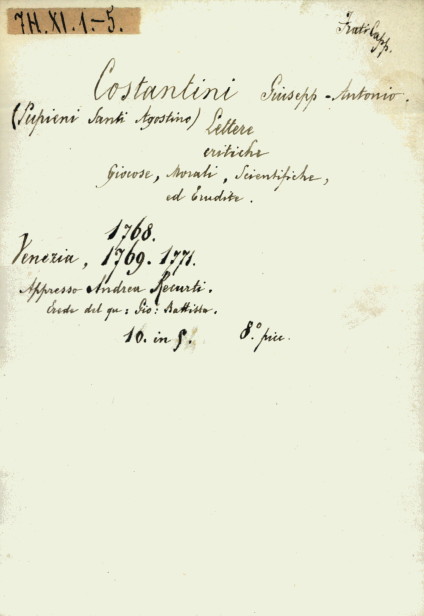 7H.XI.1.-5.
Frati Capp.
Costantini Giusepp-Antonio.
(Pupieni Santi Agostino) Lettere
critiche
Giocose, Morali, Scientifiche,
ed Erudite.
1768.
Venezia, 1769. 1771.
Appresso Andrea Recurti.
Erede del qu: Gio: Battista.
10. in 5. 8.° picc.